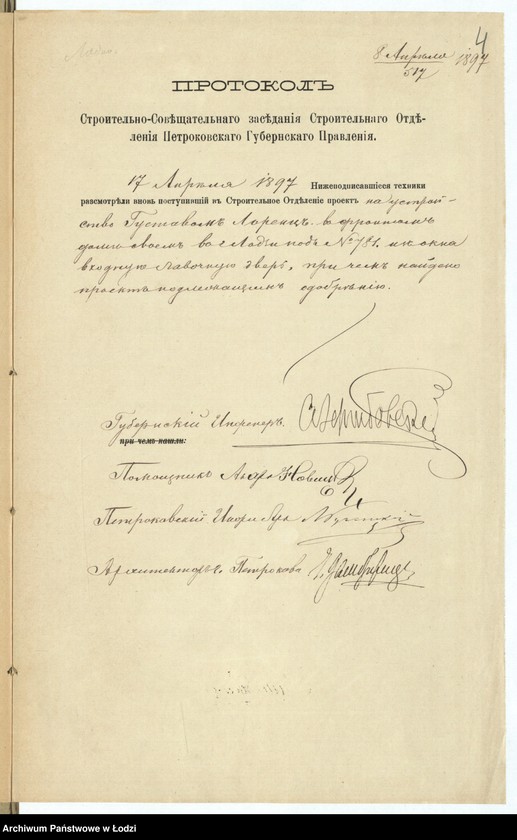 4
8 Апреля 1897
517
ПРОТОКОЛЪ
Строительно-Совѣщательнаго засѣданія Строительнаго Отдѣ-
ленія Петроковскаго Губернскаго Правленія.
17 Апреля 1897 Нижеподписавшіеся техники
разсмотрѣли вновь поступившій въ Строительное Отдѣленіе проектъ на устрой-
ство Густавомъ Лоренцъ въ фронтомъ
домѣ своемъ въ г. Лодзи подъ № 781. изъ окна
входную лавочную дверь, при чемъ найдено
проектъ подлежащимъ одобрѣнію.
Губернскій Инженеръ.
при чемъ нашли:
Помощникъ
Петроковскій
Архитекторъ г. Петрокова
Archiwum Państwowe w Łodzi